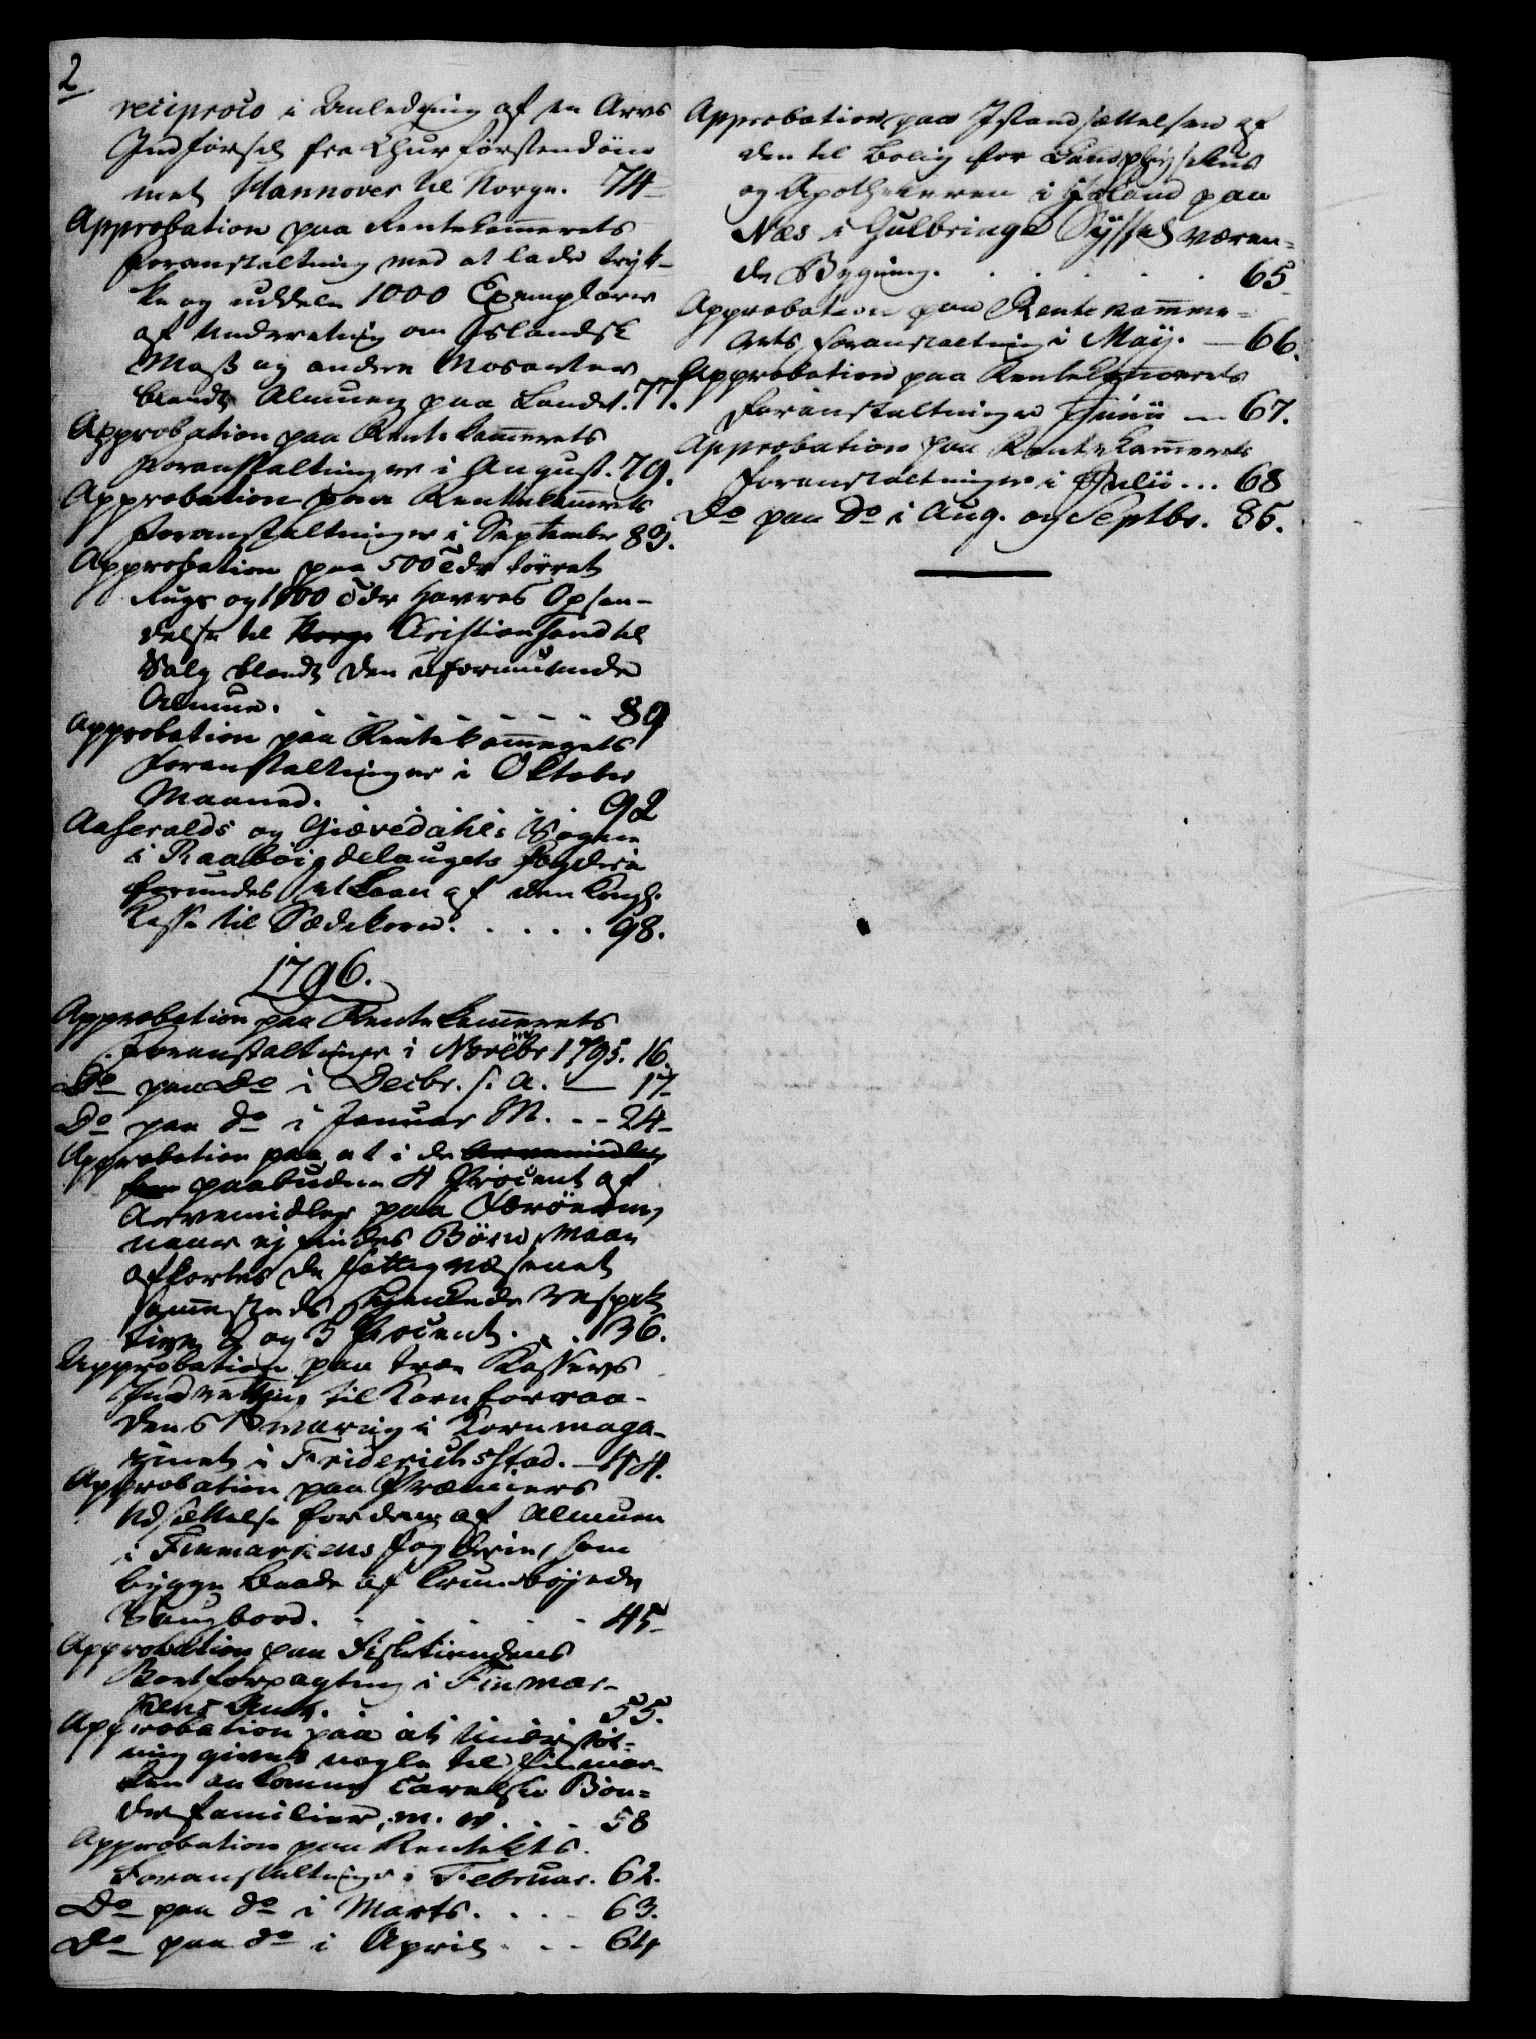 2
reciproco i Anledning af en Arvs
Indførsel fra Churførstendøm
met Hannover til Norge. 74
Approbation paa Rentekam̄erets
Foranstaltning med at lade tryk-
ke og uddele 1000 Exemplarer
af Underretning om Islandsk
Moss og andre Mosarter
blandt Almuen paa Landet. 77.
Approbation paa Rentekam̄erets
Foranstaltninger i August. 79.
Approbation paa Rentekam̄erets
Foranstaltninger i September 83.
Approbation paa 500 Tdr tørret
Rugs og 1000 Tdr Havres Opsen-
delse til Norge Christiansand til
Salg blandt den uformuende
Almue. 89
Approbation paa Rentekam̄erets
Foranstaltninger i Oktober
Maaned. 92
Aaseralds og Giævedahls Sogne
i Raabøigdelaugets Fogderie
forundes et Laan af den Kongl.
Kasse til Sædekorn. 98.
1796.
Approbation paa Rentekam̄erets
Foranstaltninger i Novebr 1795. 16.
Do paa Do i Decbr. s. a. — 17
Do paa do i Januar M. - - 24
Approbation paa at i de Arvemidler
paabudne 4 Procent af
Arvemidler paa Færøerne,
naar ej findes Børn, maae
afkortes de Fattigvæsenet
sam̄esteds skienkede respek
tive 2 og 3 Procent. 36.
Approbation paa træe Kassers
Indretting til Kornforraa-
dens Bevaring i Kornmaga-
zinet i Friderichsstad. — 44.
Approbation paa Præmiers
Udsættelse for dem af Almuen
i Finmarkens Fogderie, som
bygge Baade af krumbøyede
Saugbord. 45
Approbation paa Fisketiendens
Bortforpagtning i Finmar-
kens Amt. 55.
Approbation paa at Understøt-
ning givet nogle til Finmar-
ken ankomne Carelske Bøn-
derfamilier, m. v. 58
Approbation paa Rentekts.
Foranstaltninger i Februar. 62.
Do paa do i Marts. 63.
Do paa do i April 64
Approbation paa Istandsættelsen af
den til Bolig for Landphysikus
og Apothekeren i Island paa
Næs i Gulbringe Syssel væren-
de Bygning. 65
Approbation paa Rentekamme-
rets Foranstaltning i Maij. — 66.
Approbation paa Rentekam̄erets
Foranstaltninger i Junii — 67.
Approbation paa Rentekam̄erets
Foranstaltninger i Julii... 68
Do paa Do i Aug. og Septbr. 85.